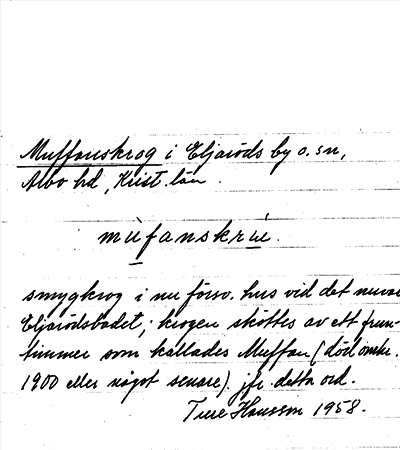 Muffanskrog i Eljaröds by o. sn,
Albo hd, Krist. län.
mùfanskrúe.
smygkrog i nu försv. hus vid det nuva
Eljarödsbadet; krogen sköttes av ett frun-
timmer som kallades Muffan (död omkr.
1900 eller något senare). jfr detta ord.
Ture Hansson 1958.